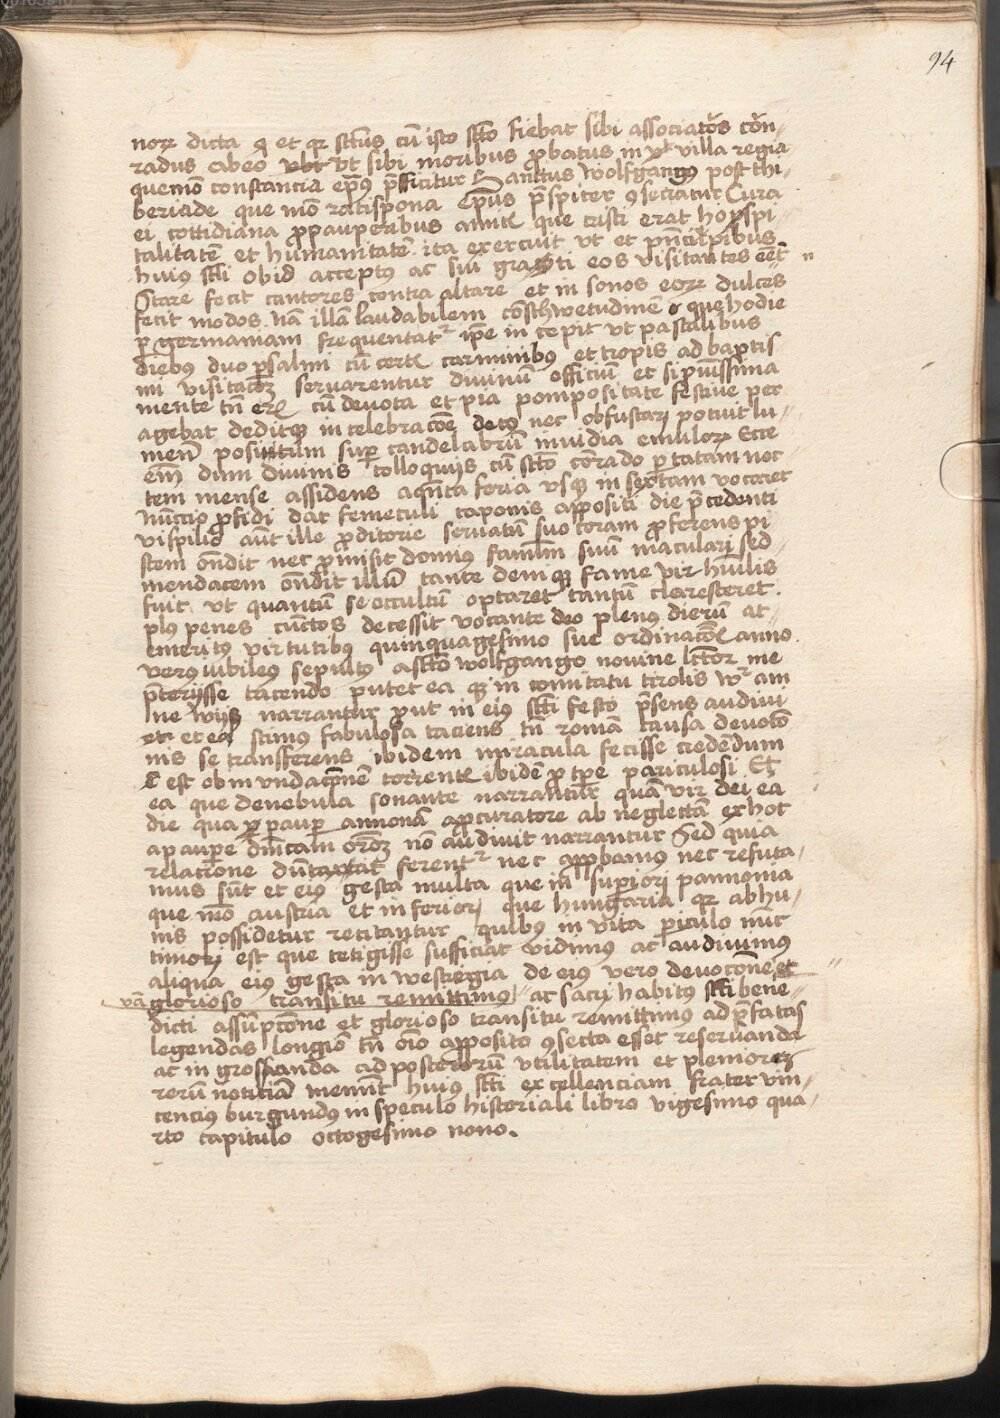 94
norꝝ dicta q̨ et qr sctūs cū isto scto fiebat sibi associatus Cōn-
radus abeo ut sibi moribus ꝓbatus in villa regia
quemō constancia epūs p̄fficitur Sanctus Wolfgangus post thi-
beriade que mō ratispona Epūs p̄spiter ꝯsecratur Cura
ei cottidiana ꝓpauperibus que cristi erat hoyspi
talitatē et humanitatē ita exercuit vt et pn̄cipibus
huiꝰ scti obid acceptꝰ ac sui grati eos visitantes eēt
Stare fecit cantores contra altare et in sonos eorꝝ dulces
fecit modos Nā illā laudabilem cōschwetudinē quehodie
ꝑ germaniam frequentatʳ ipse in cepit vt pastalibus
diebus duo psalmi cū certꝭ carminibꝰ et tropis ad baptis
mi visitacōꝫ servarentur divinū officiū et si
mente tn̄ cū devota et pia pompositate festive per
agebat deditqꝫ incelebracōe nec obfustarj potuit lu-
men positum suꝑ candelabrū invidia emulorꝝ Ecce
em̄ dum divinis colloquijs cū scto corrado ꝑ tatam noc-
tem mense assidens aqn̄ta feria vsqꝫ in sextam vocaret
Nūccio ꝓfidi dat femeculi caponis appositi die p̄cedenti
vispilio aūt ille ꝓditorie servatū suo coram ꝓferens pi
stem on̄dit nec ꝓmisit domiꝰ famlm̄ suū maculari sed
mendacem on̄dit illū tante demiqꝫ fame vir huilis
fuit vt quantū se occultū optaret tantū claresceret
plꝰ penes cūctos decessit vocante deo plenꝰ dierū at-
emeritꝰ virtutibꝰ quinquagesimo sue ordinacōꝭ anno
verꝰ iubileꝰ sepultꝰ ascto wolfgango novine lctor me
p̄terijsse tacendo putet ea qꝫ in comitatu tirolis am
ne narrantur ꝓut in eiꝰ scti festo p̄sens audivi
et ea scimꝰ fabulosa taciens tn̄ romā causa devoto
nis se transferens ibidem miracula fecisse credendum
est ob in vndacōnē torrentꝭ ibidē ꝓ tꝑe pariculosi Et
ea que denebula sonante narrantur quā vir dei ea
die qua ꝓ pauꝑ annonā aprcuratore ab neglectā ex hoc
apauꝑe dn̄icam orōꝫ nō audivit narrantur Sed quia
relacione dūtaxat ferentʳ nec apꝓbamꝰ nec refuta-
mus sūt et eiꝰ gesta multa que in supiorj pannonia
que mō austria et inferiorj que hungaria qr abhu-
nis possidetur recitantur quibus in vita piculo nūc
timorj est que tetigisse sufficiat vidimꝰ ac audivimꝰ
aliqua eiꝰ gesta in westrogia de eiꝰ vero devocōne et
glorioso transitu remittimꝰ ac sacrj habitꝰ scti bene-
dicti assūpcōne et glorioso transitu remittimus ad p̄fatas
legendas longiō tn̄ oīo apposita ꝯsecta esset reservanda
ac in grossanda ad posterorū vtilitatem et pleniorem
rerū noticiā memīt huiꝰ scti excellenciam frater vin-
cencius burgundꝰ in speculo historiali libro vigesimo qua-
rto capitulo octogesimo nono.